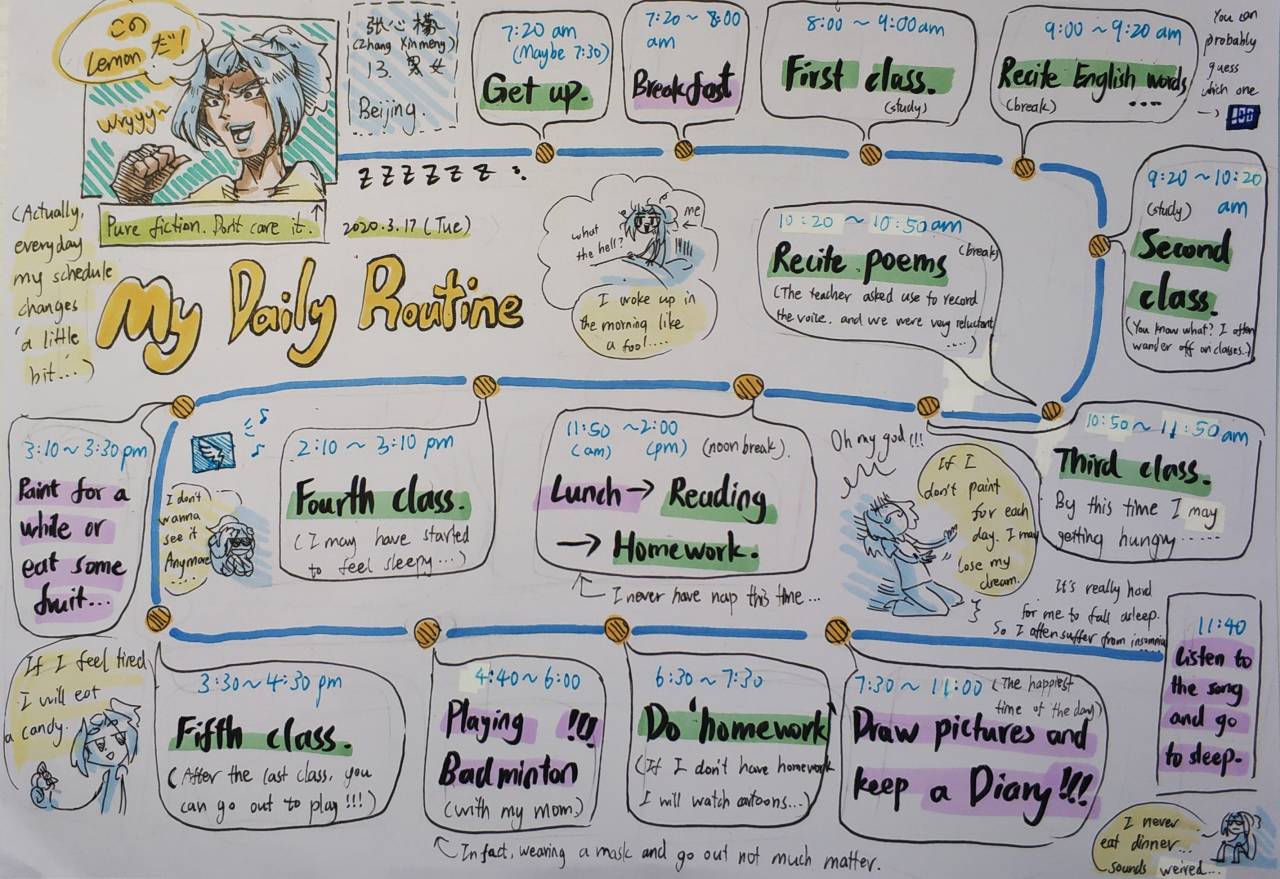 この
Lemonだ!
wryyy~
张心檬
(Zhang Xinmeng)
13. 男女
Beijing.
7:20 am
(Maybe 7:30)
Get up.
7:20 ~ 8:00
am
Breakfast
8:00 ~ 9:00am
First class.
(study)
9:00 ~ 9:20 am
Recite English words
(break) ....
You can
probably
guess
which one
→ 100
z z z z z z
Pure fiction. Don't care it. ↑
2020.3.17 (Tue)
(Actually,
everyday
my schedule
changes
a little
bit...)
My Daily Routine
what
the hell?
me
I woke up in
the morning like
a fool....
10:20 ~ 10:50am
(break)
Recite poems
(The teacher asked use to record
the voice. and we were very reluctant
....)
9:20 ~ 10:20
(study) am
Second
class.
(You know what? I often
wander off on classes.)
3:10 ~ 3:30pm
Paint for a
while or
eat some
fruit...
I don't
wanna
see it
Anymore
2:10 ~ 3:10 pm
Fourth class.
(I may have started
to feel sleepy...)
11:50 ~2:00
(am) (pm) (noon break).
Lunch → Reading
→ Homework.
I never have nap this time ...
Oh my god!!!
If I
don't paint
for each
day. I may
lose my
dream.
10:50 ~ 11:50am
Third class.
By this time I may
getting hungry .....
It's really hard
for me to fall asleep.
So I often suffer from insomnia
If I feel tired
I will eat
a candy.
3:30 ~ 4:30 pm
Fifth class.
(After the last class, you
can go out to play!!!)
4:40 ~ 6:00
Playing !!!
Badminton
(with my mom)
In fact, wearing a mask and go out not much matter.
6:30 ~ 7:30
Do homework
(If I don't have homework
I will watch cartoons...)
7:30 ~ 11:00 (The happiest
time of the day)
Draw pictures and
keep a Diary!!!
11:40
Listen to
the song
and go
to sleep.
I never
eat dinner...
sounds weired...